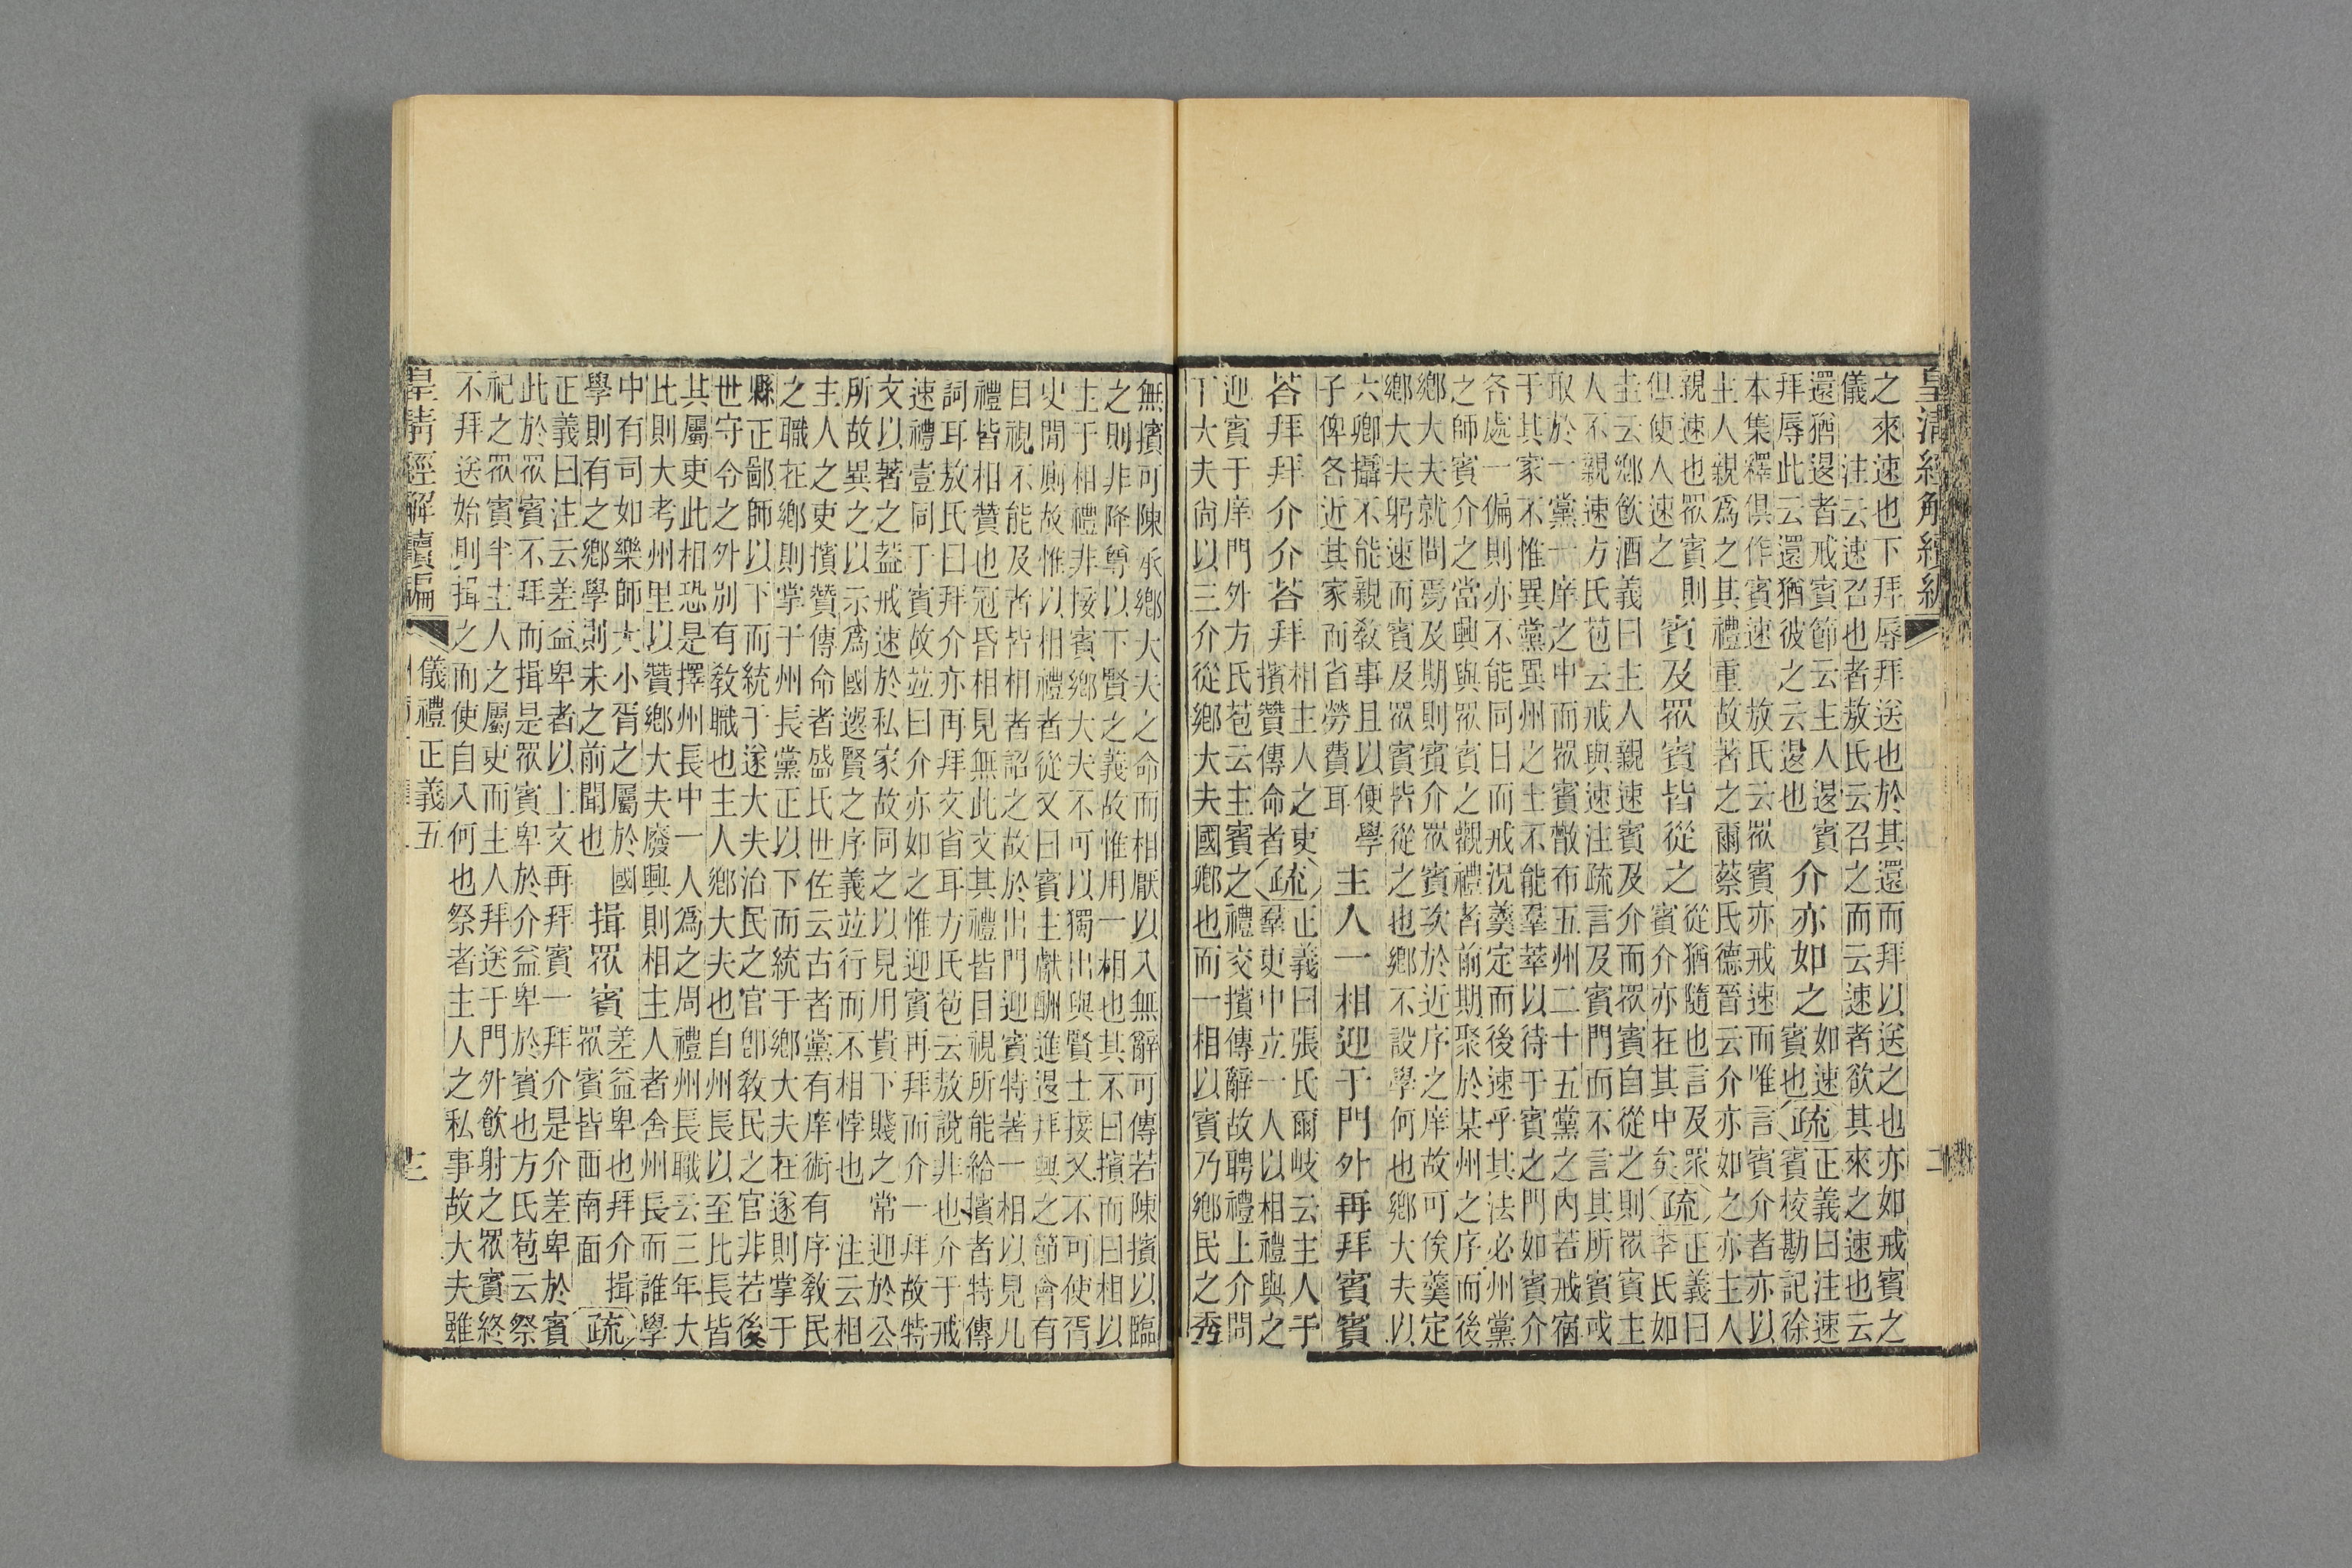 皇清經解續編
之來速也下拜辱拜送也於其還而拜以送之也亦如戒賓之
儀 注云速召也者敖氏云召之而云速者欲其來之速也云
還猶退者戒賓節云主人退賓
拜辱此云還猶彼之云退也
介亦如之
如速
賓也
疏
正義曰注速
賓校勘記徐
本集釋俱作賓速 敖氏云眾賓亦戒速而唯言賓介者亦以
主人親爲之其禮重故著之爾蔡氏德晉云介亦如之亦主人
親速也眾賓則
但使人速之
賓及眾賓皆從之
從猶隨也言及眾
賓介亦在其中矣
疏
正義曰
李氏如
圭云鄉飲酒義曰主人親速賓及介而眾賓自從之則眾賓主
人不親速方氏苞云戒與速注疏言及賓門而不言其所賓或
取於一黨一庠之中而眾賓散布五州二十五黨之內若戒宿
于其家不惟異黨異州之士不能羣萃以待于賓之門如賓介
各處一偏則亦不能同日而戒況羹定而後速乎其法必州黨
之師賓介之當興與眾賓之觀禮者前期聚於某州之序而後
鄉大夫就問焉及期則賓介眾賓次於近序之庠故可俟羹定
鄉大夫躬速而賓及眾賓皆從之也鄉不設學何也鄉大夫以
六卿攝不能親敎事且以便學
子俾各近其家而省勞費耳
主人一相迎于門外再拜賓賓
荅拜拜介介荅拜
相主人之吏
擯贊傳命者
疏
正義曰張氏爾岐云主人于
羣吏中立一人以相禮與之
迎賓于庠門外方氏苞云主賓之禮交擯傳辭故聘禮上介問
下大夫尙以三介從鄉大夫國卿也而一相以賓乃鄉民之秀
二
無擯可陳承鄉大夫之命而相厭以入無辭可傳若陳擯以臨
之則非降尊以下賢之義故惟用一相也其不曰擯而曰相以
主于相禮非接賓鄉大夫不可以獨出與賢士接又不可使胥
史閒廁故惟以相禮者從又曰賓主獻酬進退拜興之節會有
目視不能及者皆相者詔之故於出門迎賓特著一相以見凡
禮皆相贊也冠昏相見無此文其禮皆目視所能給擯者特傳
詞耳敖氏曰拜介亦再拜文省耳方氏苞云敖說非也介于戒
速禮壹同于賓故並曰介亦如之惟迎賓再拜而介一拜故特
文以著之蓋戒速於私家故同之以見用貴下賤之常迎於公
所故異之以示爲國選賢之序義並行而不相悖也 注云相
主人之吏擯贊傳命者盛氏世佐云古者黨有庠術有序敎民
之職在鄉則掌于州長黨正以下而統于鄉大夫在遂則掌于
縣正鄙師以下而統于遂大夫治民之官卽敎民之官非若後
世守令之外別有敎職也主人鄉大夫也自州長以至比長皆
其屬吏此相恐是擇州長中一人爲之周禮州長職云三年大
比則大考州里以贊鄉大夫廢興則相主人者舍州長而誰學
中有司如樂師大小胥之屬於國
學則有之鄉學則未之前聞也
揖眾賓
差益卑也拜介揖
眾賓皆西南面
疏
正義曰注云差益卑者以上文再拜賓一拜介是介差卑於賓
此於眾賓不拜而揖是眾賓卑於介益卑於賓也方氏苞云祭
祀之眾賓半主人之屬吏而主人拜送于門外飲射之眾賓終
不拜送始則揖之而使自入何也祭者主人之私事故大夫雖
皇清經解續編
儀禮正義五